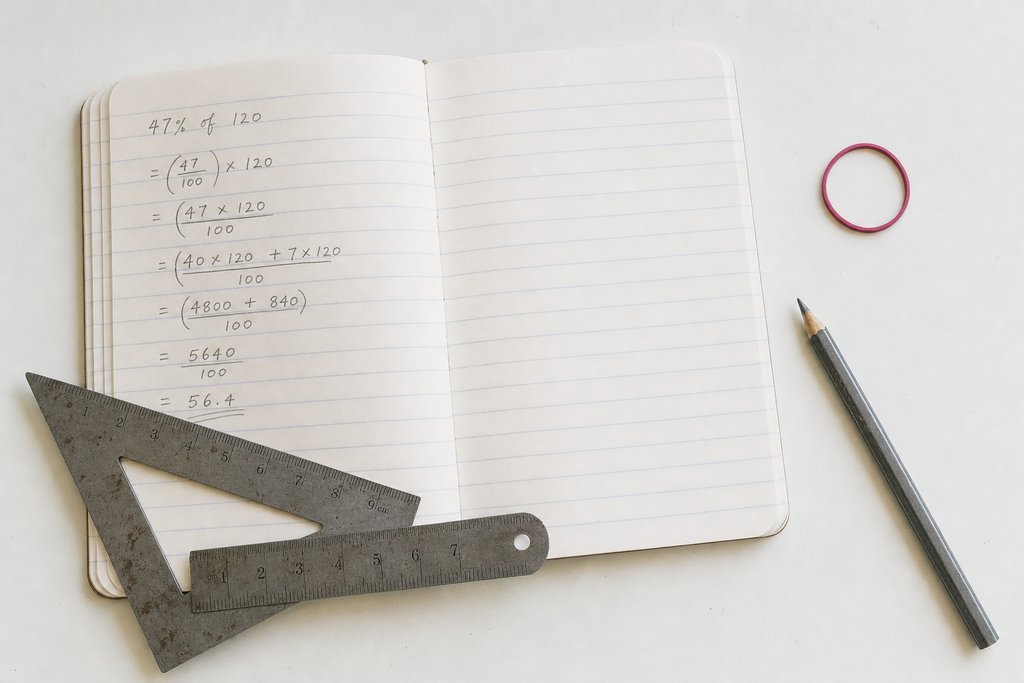 47% of 120
= (47/100) × 120
= (47 × 120/100
= (40 × 120 + 7 × 120/100
= (4800 + 840)/100
= 5640/100
= 56.4
1 2 3 4 5 6 7 8 9 cm
cm 1 2 3 4 5 6 7